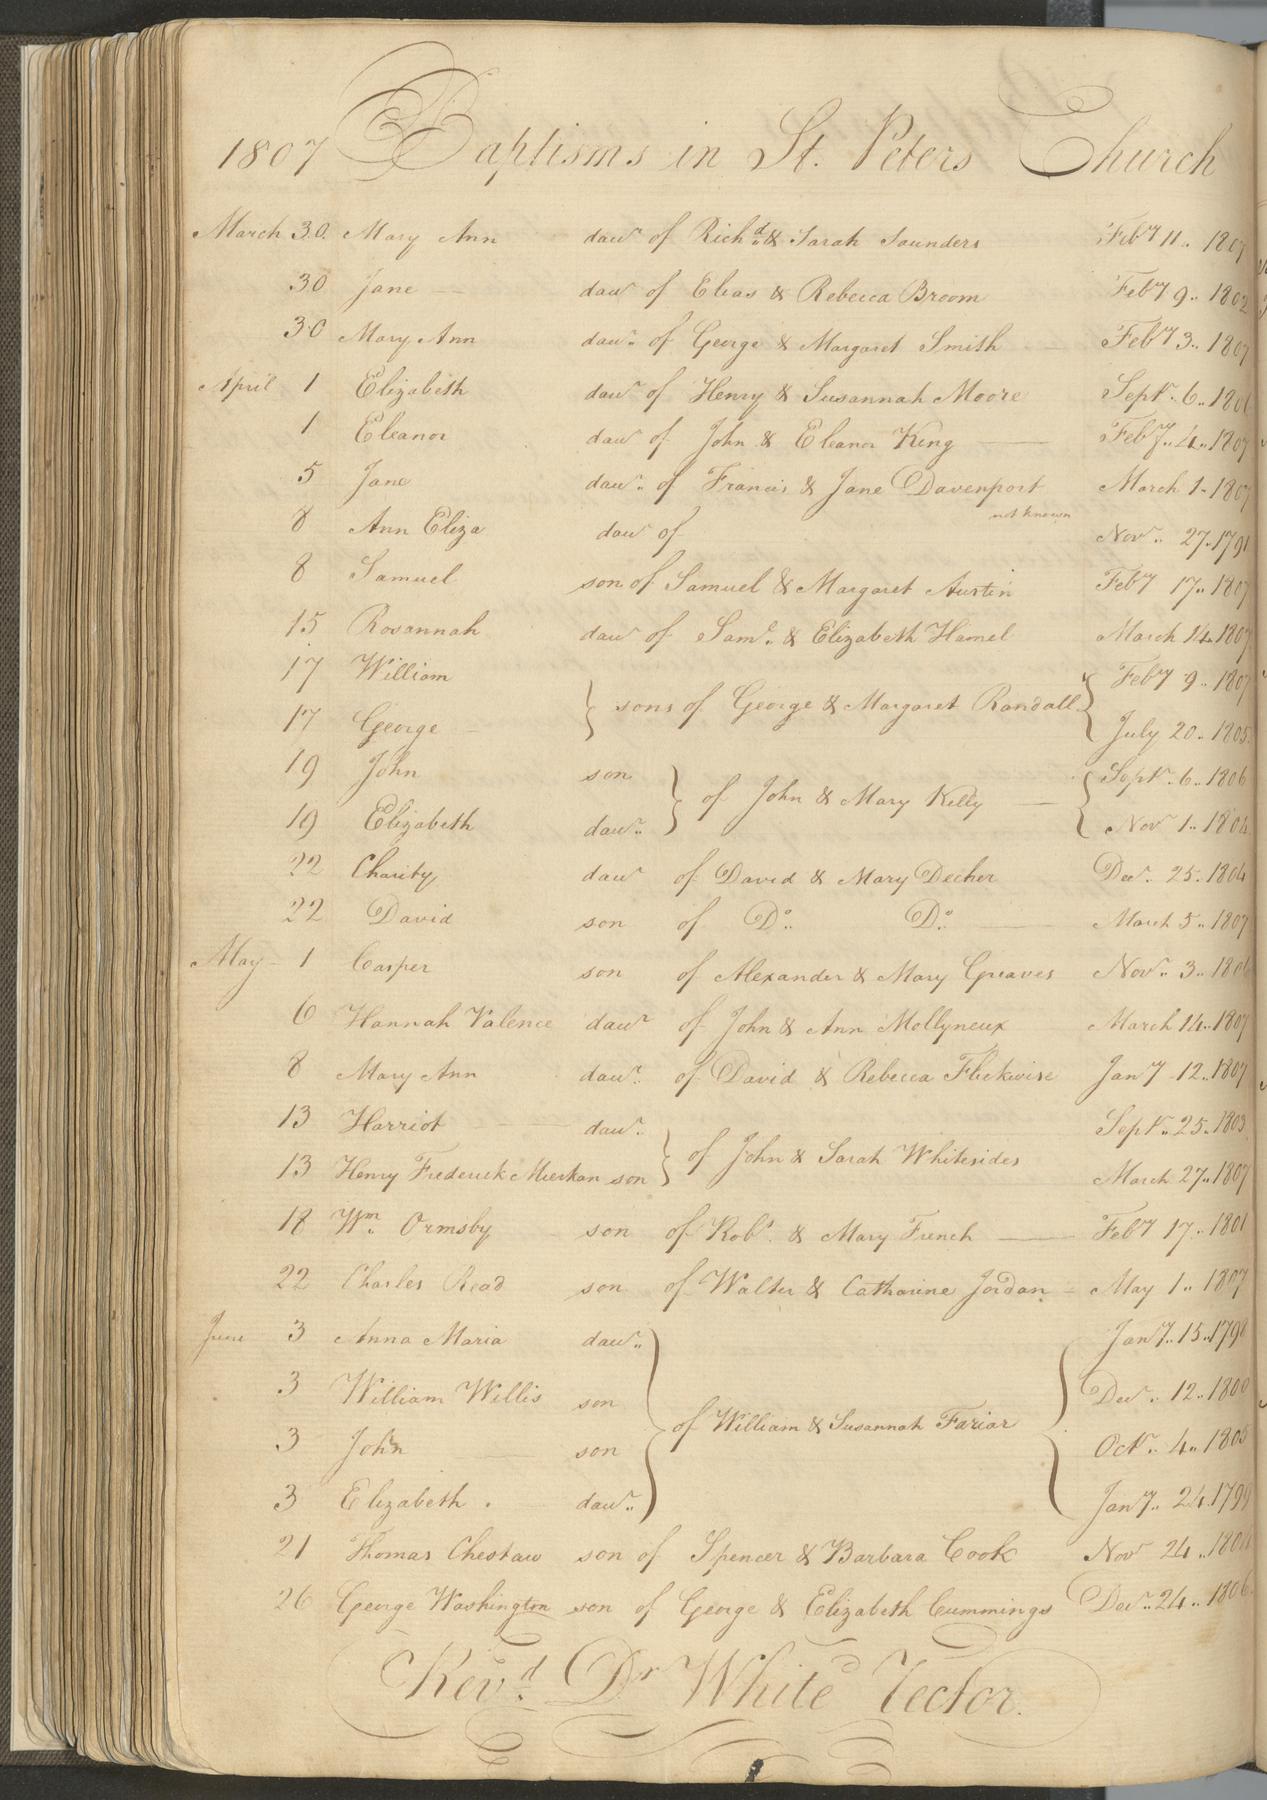 1807 Baptisms in St. Peters Church
March 30. Mary Ann dawr of Richd. & Sarah Saunders Feby 11.. 1807
30 Jane dawr of Elias & Rebecca Broom Feby 9.. 1802
30 Mary Ann dawr. of George & Margaret Smith Feby 3.. 1807
April 1 Elizabeth dawr of Henry & Susannah Moore Septr. 6..
1 Eleanor dawr of John & Eleanor King Feby.. 4.. 1807
5 Jane dawr. of Francis & Jane Davenport March 1. 1807
8 Ann Eliza dawr of not known Novr. 27. 1791
8 Samuel son of Samuel & Margaret Austin Feby 17.. 1807
15 Rosannah dawr of Saml. & Elizabeth Hamel March 14. 1807
17 William Feby 9.. 1807
sons of George & Margaret Randall
17 George July 20.. 1805
19 John son Septr. 6.. 1806
of John & Mary Kelly
19 Elizabeth dawr. Novr 1.. 1804
22 Charity dawr of David & Mary Decher Decr. 25. 1804
22 David son of Do. Do. March 5.. 1807
May 1 Casper son of Alexander & Mary Greaves Novr. 3.. 1806
6 Hannah Valence dawr of John & Ann Mollyneux March 14.. 1807
8 Mary Ann dawr. of David & Rebecca Flickwise Jany 12.. 1807
13 Harriot dawr. Septr. 25. 1803
of John & Sarah Whitesides
13 Henry Frederick Mierkan son March 27.. 1807
18 Wm. Ormsby son of Robt. & Mary French Feby 17.. 1801
22 Charles Read son of Walter & Catharine Jordan May 1.. 1807
June 3 Anna Maria dawr. Jany.. 15.. 1798
3 William Willis son Decr. 12.. 1800
of William & Susannah Fariar
3 John son Octr. 4.. 1805
3 Elizabeth dawr. Jany.. 24. 1799
21 Thomas Chestaw son of Spencer & Barbara Cook Novr 24.. 1804
26 George Washington son of George & Elizabeth Cummings Decr.. 24.. 1806
Revd. Dr White Rector.